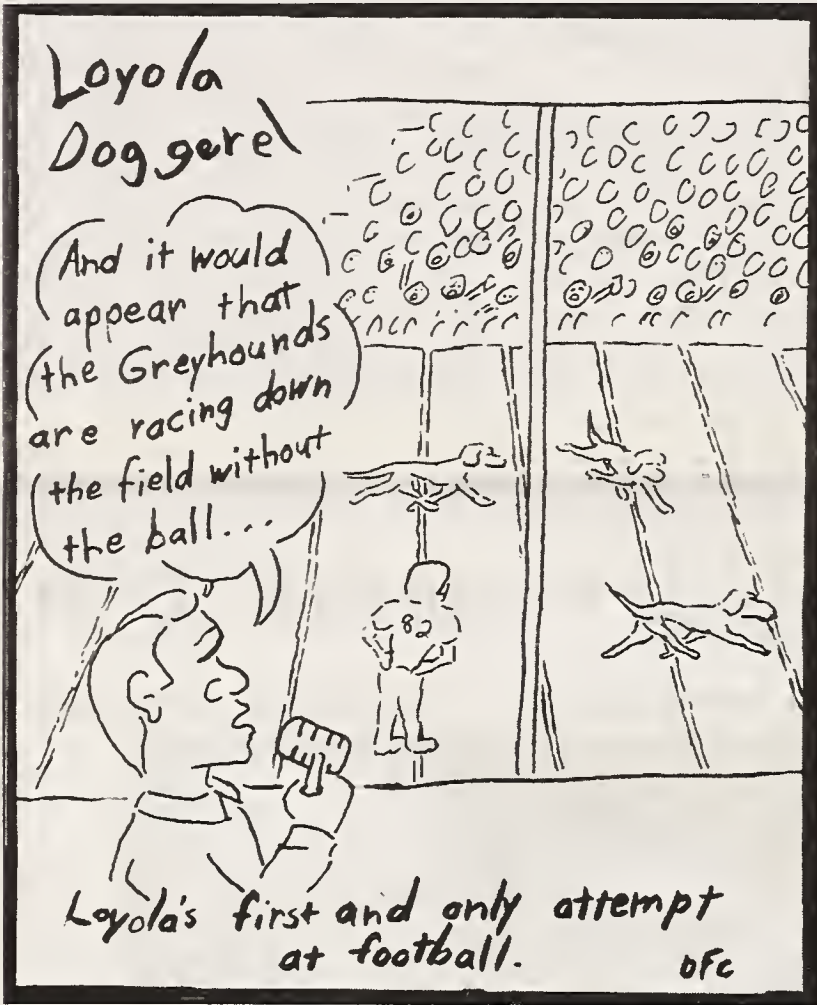 Loyola
Doggerel
And it would
appear that
the Greyhounds
are racing down
the field without
the ball...
82
Loyola's first and only attempt
at football.
OFC